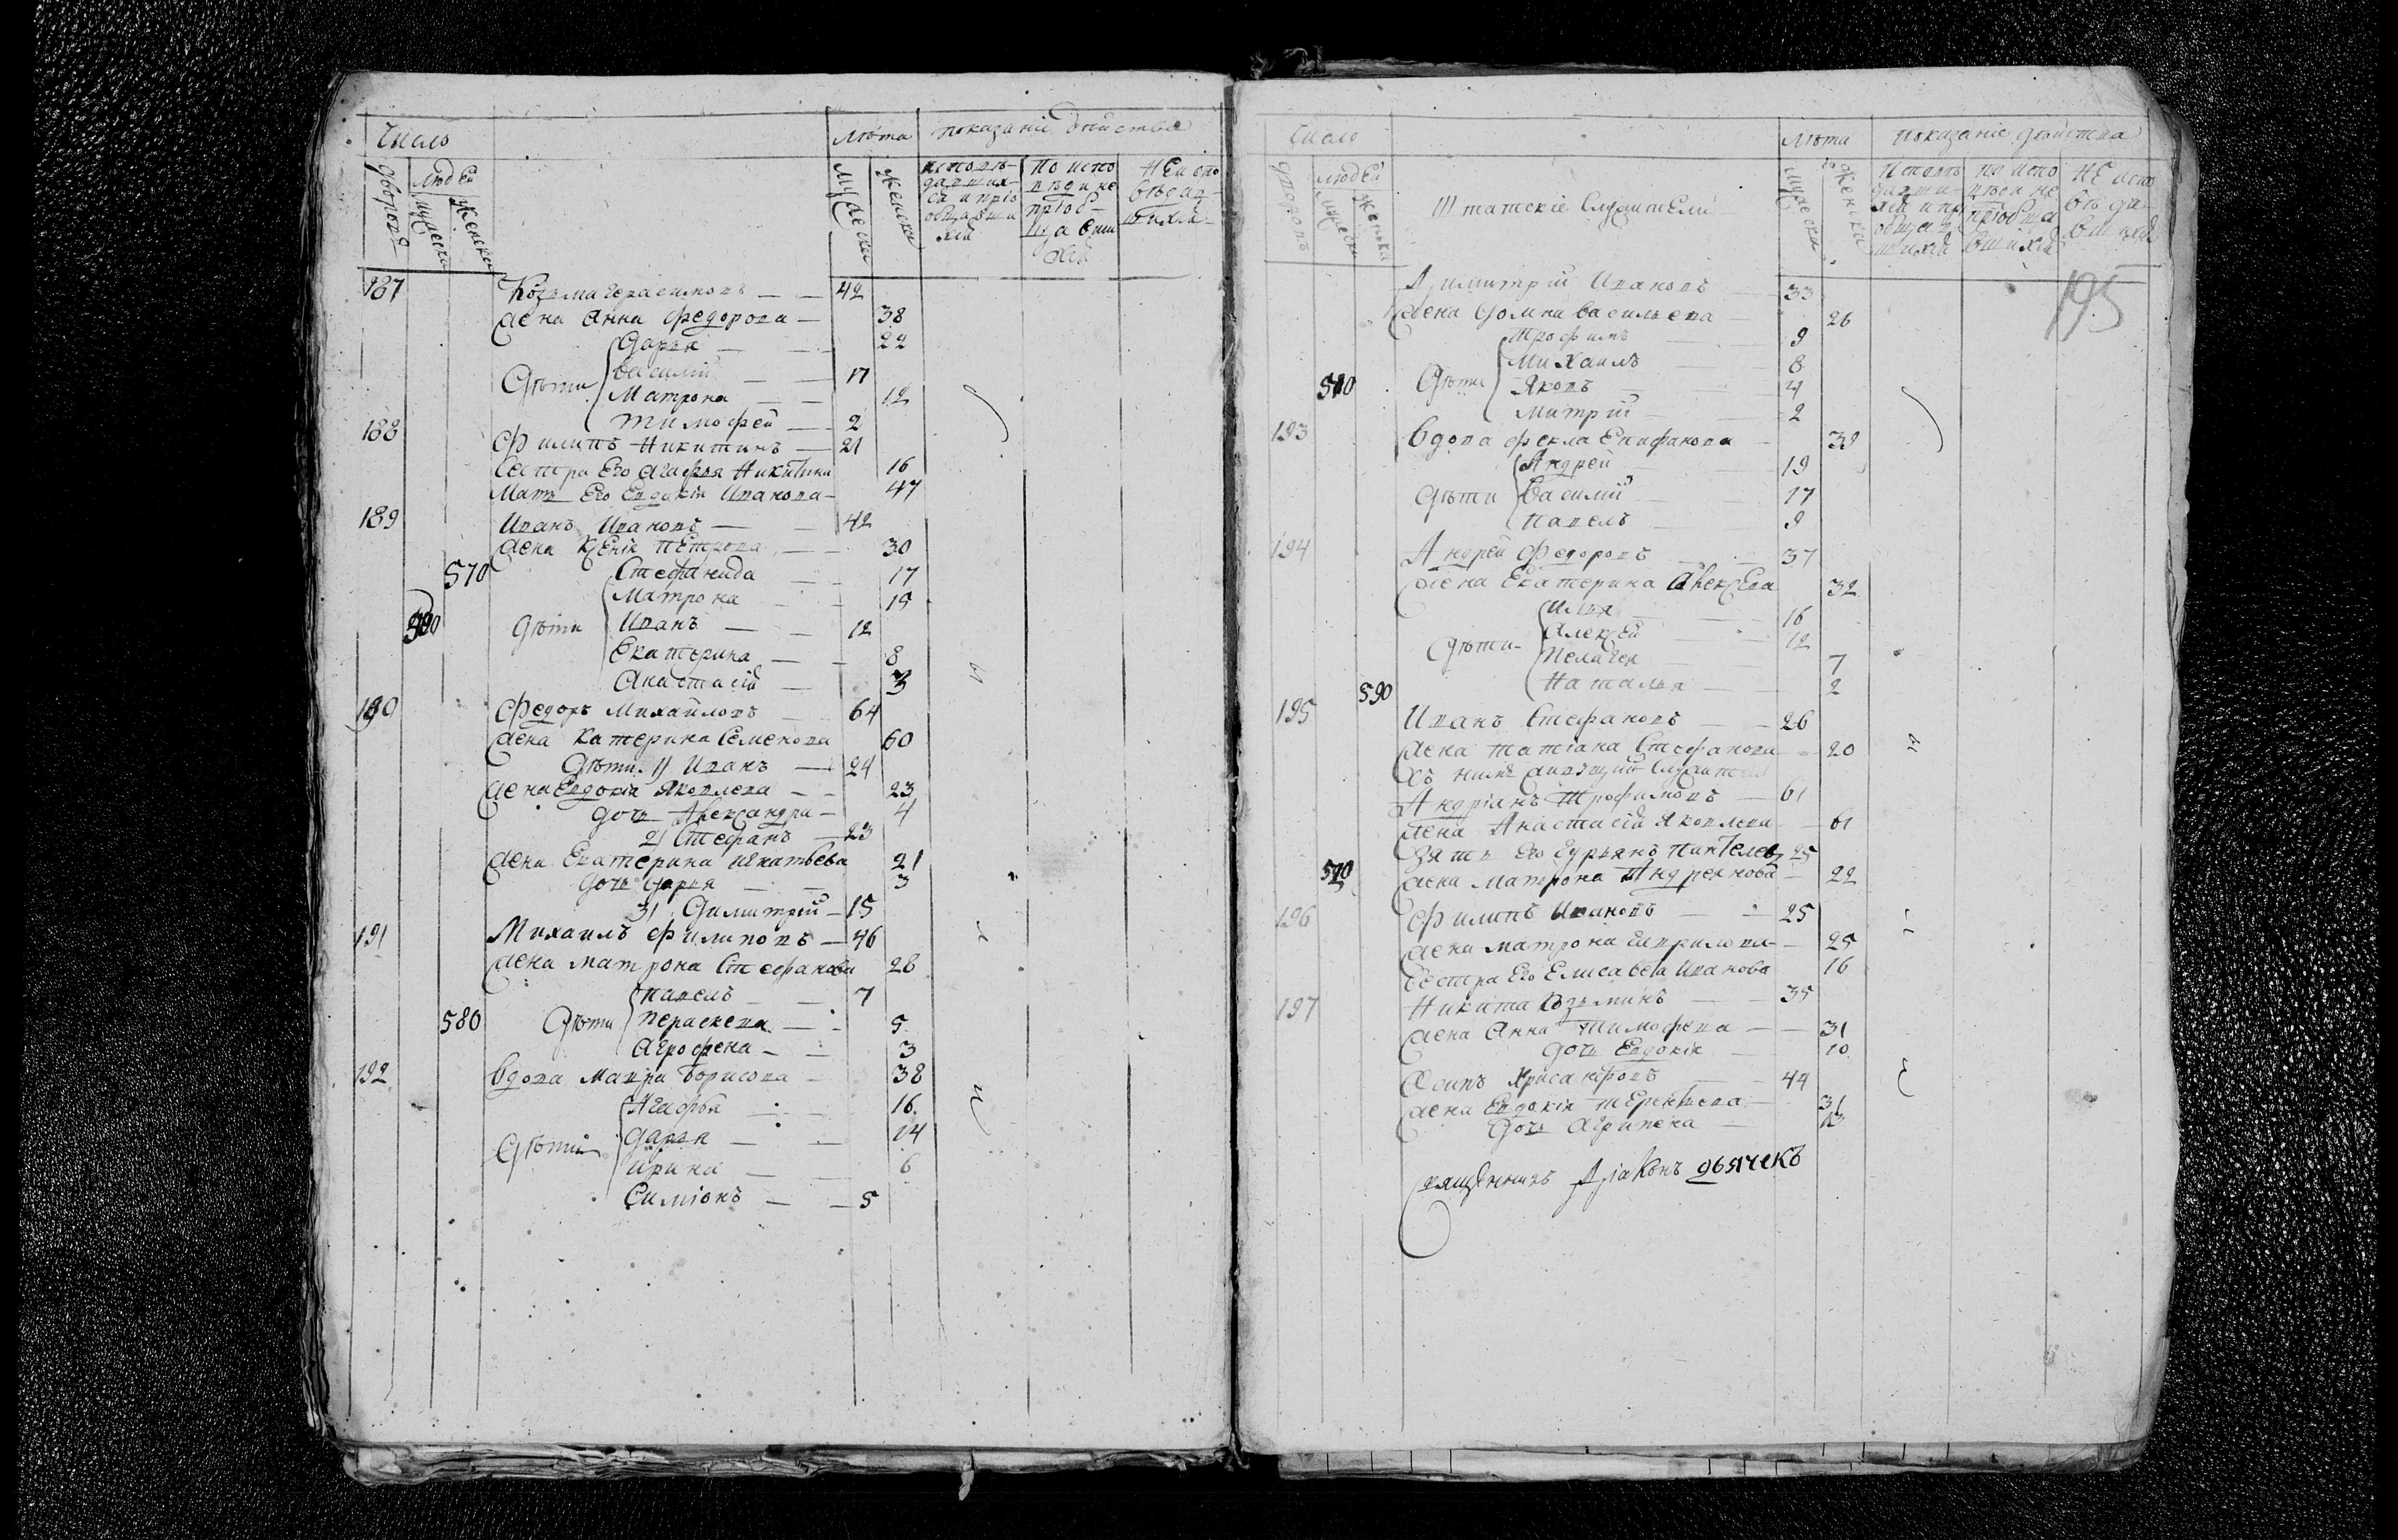 Число
Лѣта
показаніе дѣйства
дворовъ
людей
мужеска
женска
мужеска
женска
исповѣ-
давших-
ся и прїо
общавши
хся
по испо
вѣди не
прїоб-
щавши
хся
не испо
вѣдав-
шихся
187 Козьма Герасимовъ — 42
жена Анна Федорова — 38
Дѣти
Дарья — 22
Василїй — 17
Матрона — 12
Тимофей — 2
188 Филипъ Никитинъ — 21
Сестра Его Агафья Никитина 16
Мать Его Евдокїя Иванова — 47
189 Иванъ Ивановъ — 42
жена Ксенїя Петрова — 30
570 Стефанида — 17
Матрона — 15
Дѣти Иванъ — 12
Екатерина — 8
Анастасїя — 3
190 Федоръ Михайловъ — 64
жена Катерина Семенова 60
Дѣти. 1) Иванъ — 24
жена Евдокїя Яковлева — 23
дочь Александра — 4
2) Стефанъ — 23
жена Екатерина Игнатьева 21
дочь Дарья — 3
3) Димитрїй — 15
191 Михаилъ Филиповъ — 46
жена Матрона Стефанова 28
Павелъ — 7
580 Дѣти Пераскева — 5
Агрофена — 3
192 вдова Мавра Борисова — 38
Агафья — 16
Дѣти Дарья — 14
Ирина — 6
Симїонъ — 5
Число
Лѣта
Показанїе дѣйства
дворовъ
людей
мужеска
женска
Штатскїе Служители
мужеска
женска
Исповѣ
давши-
хся и пр
общав-
шихся
по испо
вѣди не
прїобща
вшихся
не испо
вѣда-
вшихся
195
Димитрїй Ивановъ 33
жена Домна Васильева 26
Трофимъ 9
Михаилъ 8
Дѣти Яковъ 4
Митрїй 2
193 вдова Фекла Епифанова 39
Андрей 19
Дѣти Василїй 17
Павелъ 9
194 Андрей Федоровъ 37
жена Екатерина Алексѣева 32
Илья 16
Алексѣй 12
Дѣти Пелагея 7
590 Наталья 2
195 Иванъ Стефановъ — 26
жена Татїана Стефанова 20
Андрїанъ Трофимовъ — 61
жена Анастасїя Яковлева — 61
Зять Его Гурьянъ Пантелев 25
жена Матрона Андреянова 22
196 Филипъ Ивановъ — 25
жена Матрона Гаврилова — 25
Сестра Его Елисавета Иванова 16
197 Никита Козьминъ — 35
жена Анна Тимофева — 31
дочь Евдокїя 10
Осипъ Хрисанфовъ 44
жена Евдокїя Терентьева 31
дочь Агрипена 13
Священникъ Дїаконъ дьячекъ